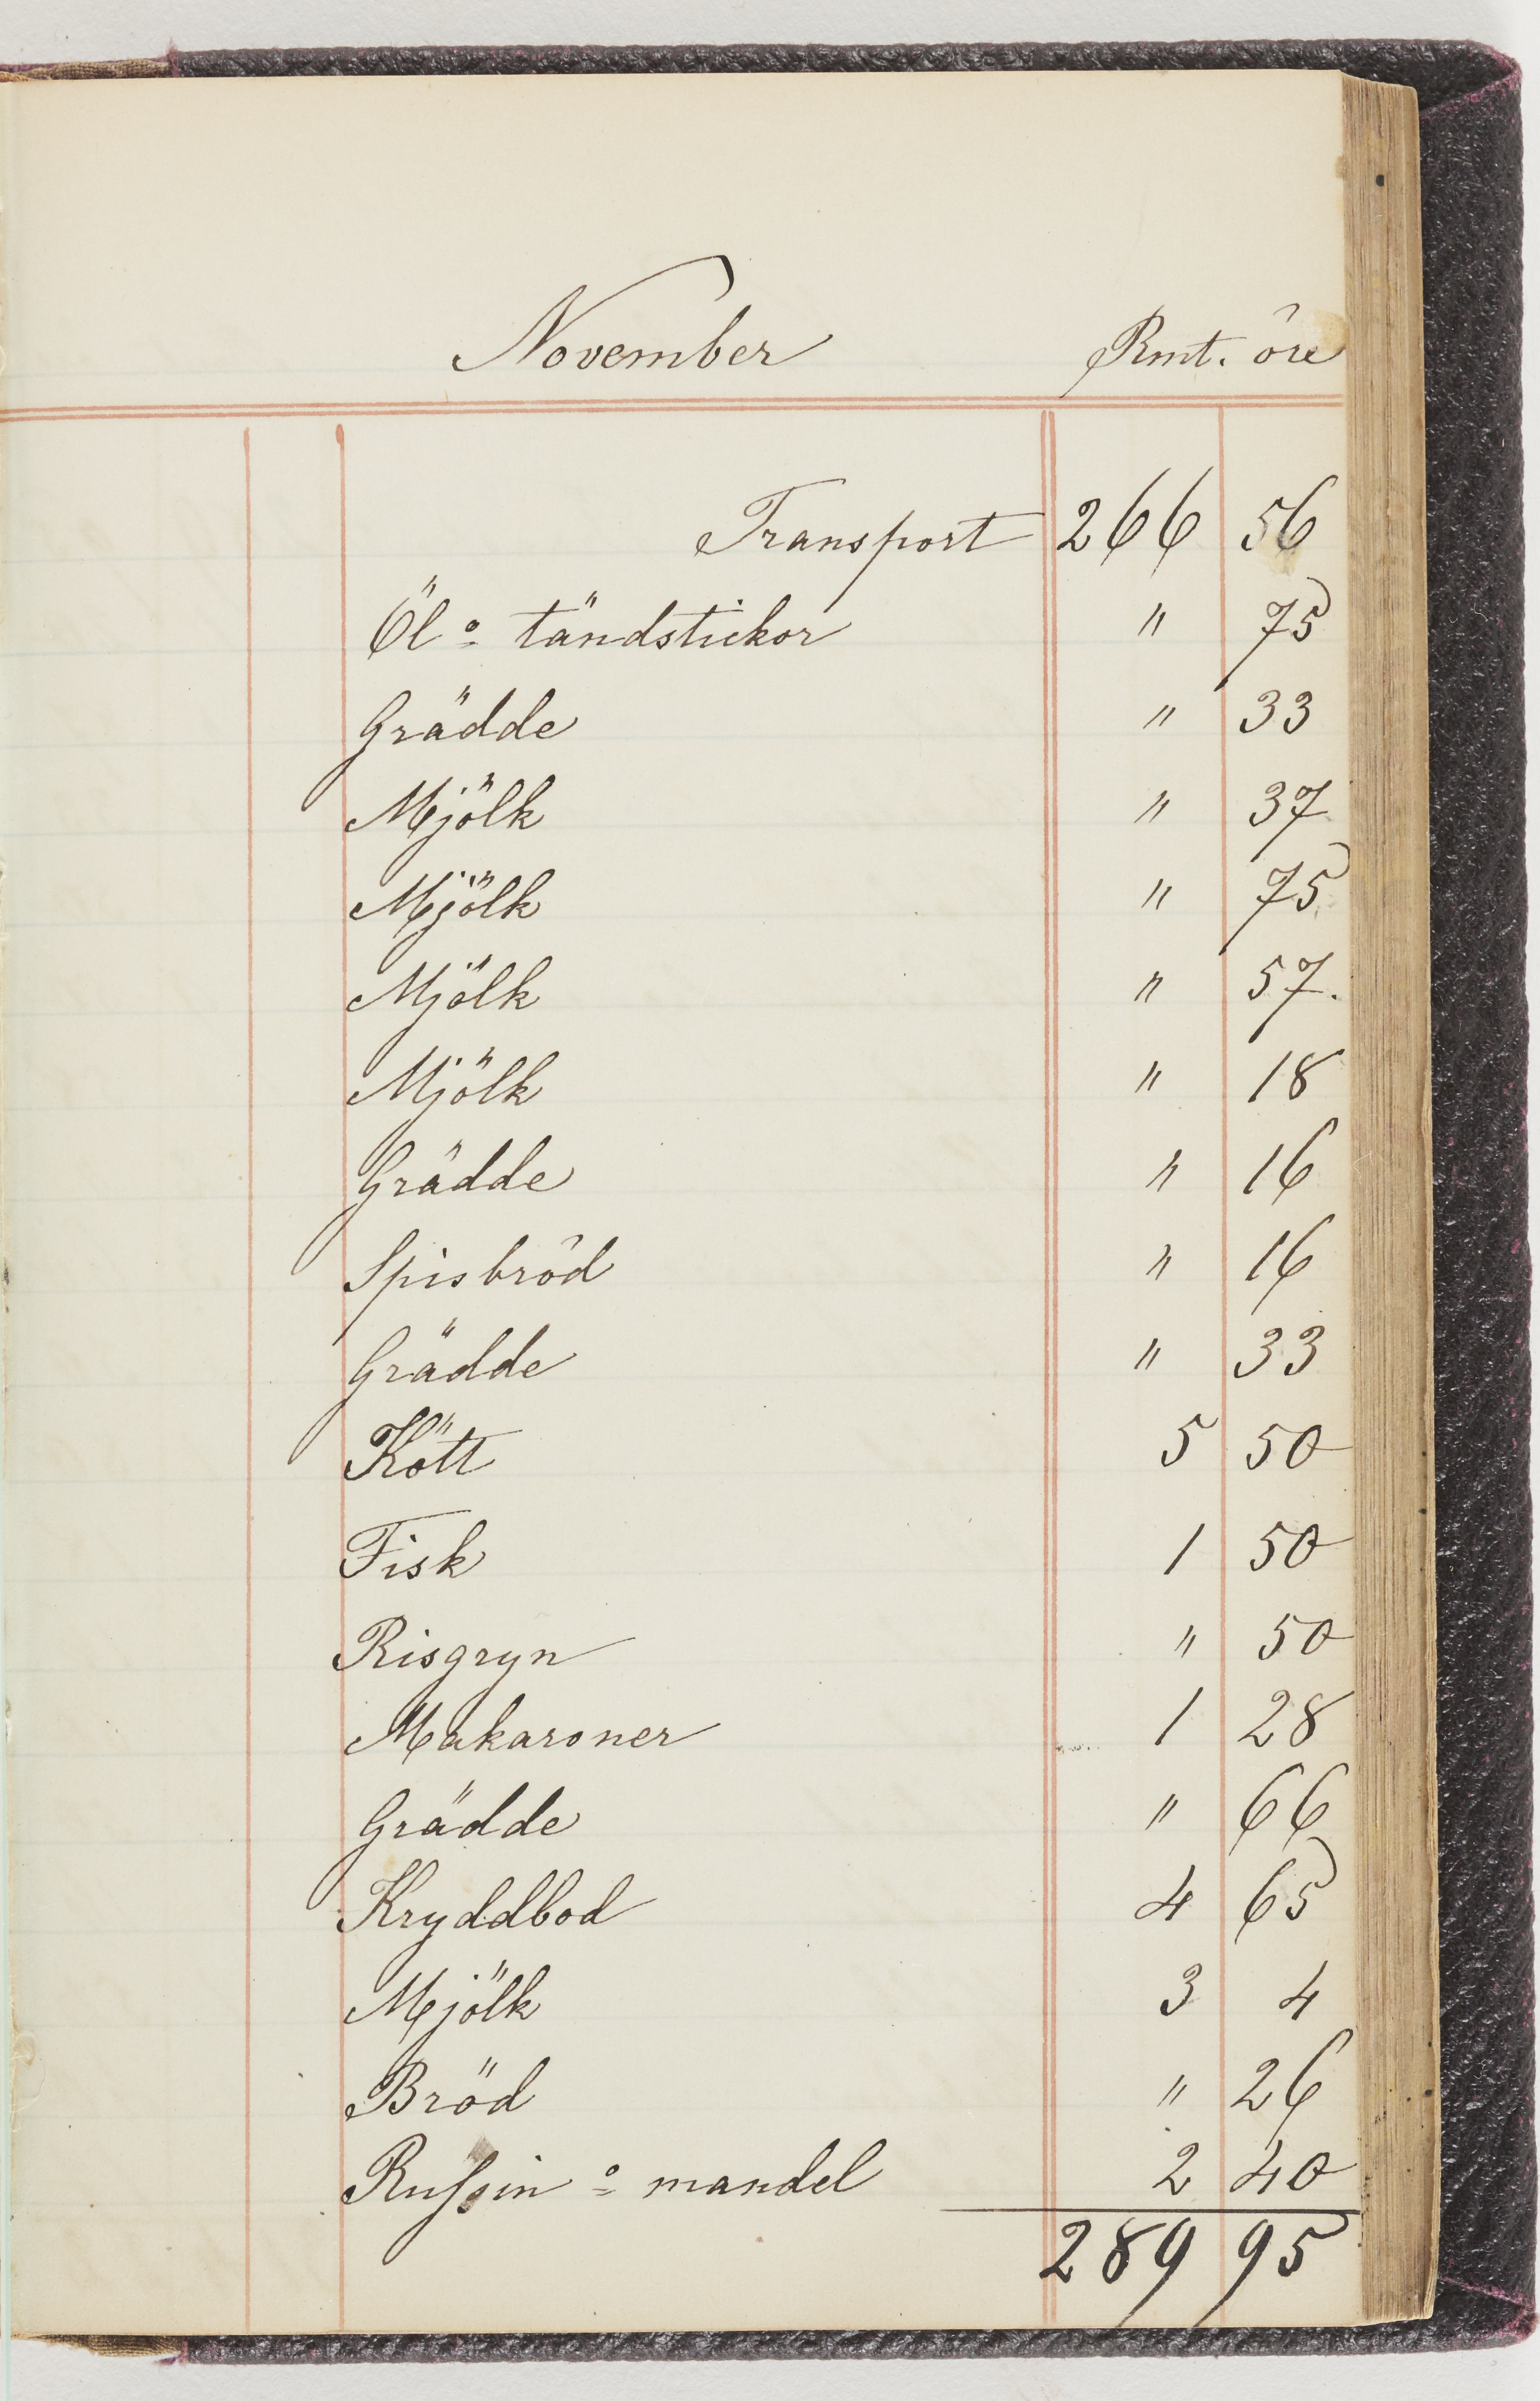 November Rmt. öre
Transport 266 56
Öl o tändstickor " 75
Grädde " 33
Mjölk " 37
Mjölk " 75
Mjölk " 57.
Mjölk " 18
Grädde " 16
Spisbröd " 16
Grädde " 33
Kött 5 50
Fisk 1 50
Risgryn " 50
Makaroner 1 28
Grädde " 66
Kryddbod 4 65
Mjölk 3 4
Bröd " 26
Russin o mandel 2 40
289 95